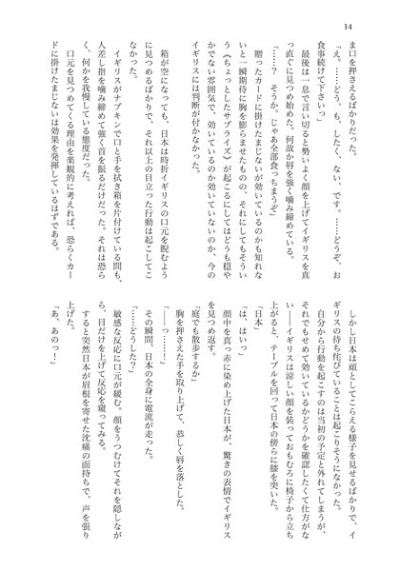 14
ま口を押さえるばかりだった。
「え。……どう、も、したく、ない、です。……どうぞ、お
食事続けて下さいっ」
最後は一息で言い切ると勢いよく顔を上げてイギリスを真
っ直ぐに見つめ始めた。何故か唇を強く噛み締めている。
「？　そうか。じゃあ全部食っちまうぞ」
贈ったカードに掛けたまじないが効いているのかも知れな
いと一瞬期待に胸を膨らませたものの、それにしてもそうい
う《ちょっとしたサプライズ》が起こるにしてはどうも穏や
かでない雰囲気で、効いているのか効いていないのか、今の
イギリスには判断が付かなかった。
箱が空になっても、日本は時折イギリスの口元を睨むよう
に見つめるばかりで、それ以上の目立った行動は起こしてこ
ない。
イギリスがナプキンで口と手を拭き箱を片付けている間も、
人差し指を噛み締めて強く首を振るだけだった。それは恐ら
く、何かを我慢している態度だった。
口元を見つめてくる理由を楽観的に考えれば、恐らくカー
ドに掛けたまじないは効果を発揮しているはずである。
しかし日本は頑としてこらえる様子を見せるばかりで、イ
ギリスの待ち侘びていることは起こりそうになかった。
自分から行動を起こすのは当初の予定と外れてしまうが、
それでもせめて効いているかどうかを確認したくて仕方がな
い――イギリスは涼しい顔を装っておもむろに椅子から立ち
上がると、テーブルを回って日本の傍らに膝を突いた。
「日本」
「は、はいっ」
顔中を真っ赤に染め上げた日本が、驚きの表情でイギリス
を見つめ返す。
「庭でも散歩するか」
胸を押さえた手を取り上げて、恭しく唇を落とした。
「――っ………！」
その瞬間、日本の全身に電流が走った。
「……どうした？」
敏感な反応に口元が緩む。顔をうつむけてそれを隠しなが
ら、目だけを上げて反応を窺ってみる。
すると突然日本が眉根を寄せた沈痛の面持ちで、声を張り
上げた。
「あ、あのっ！」